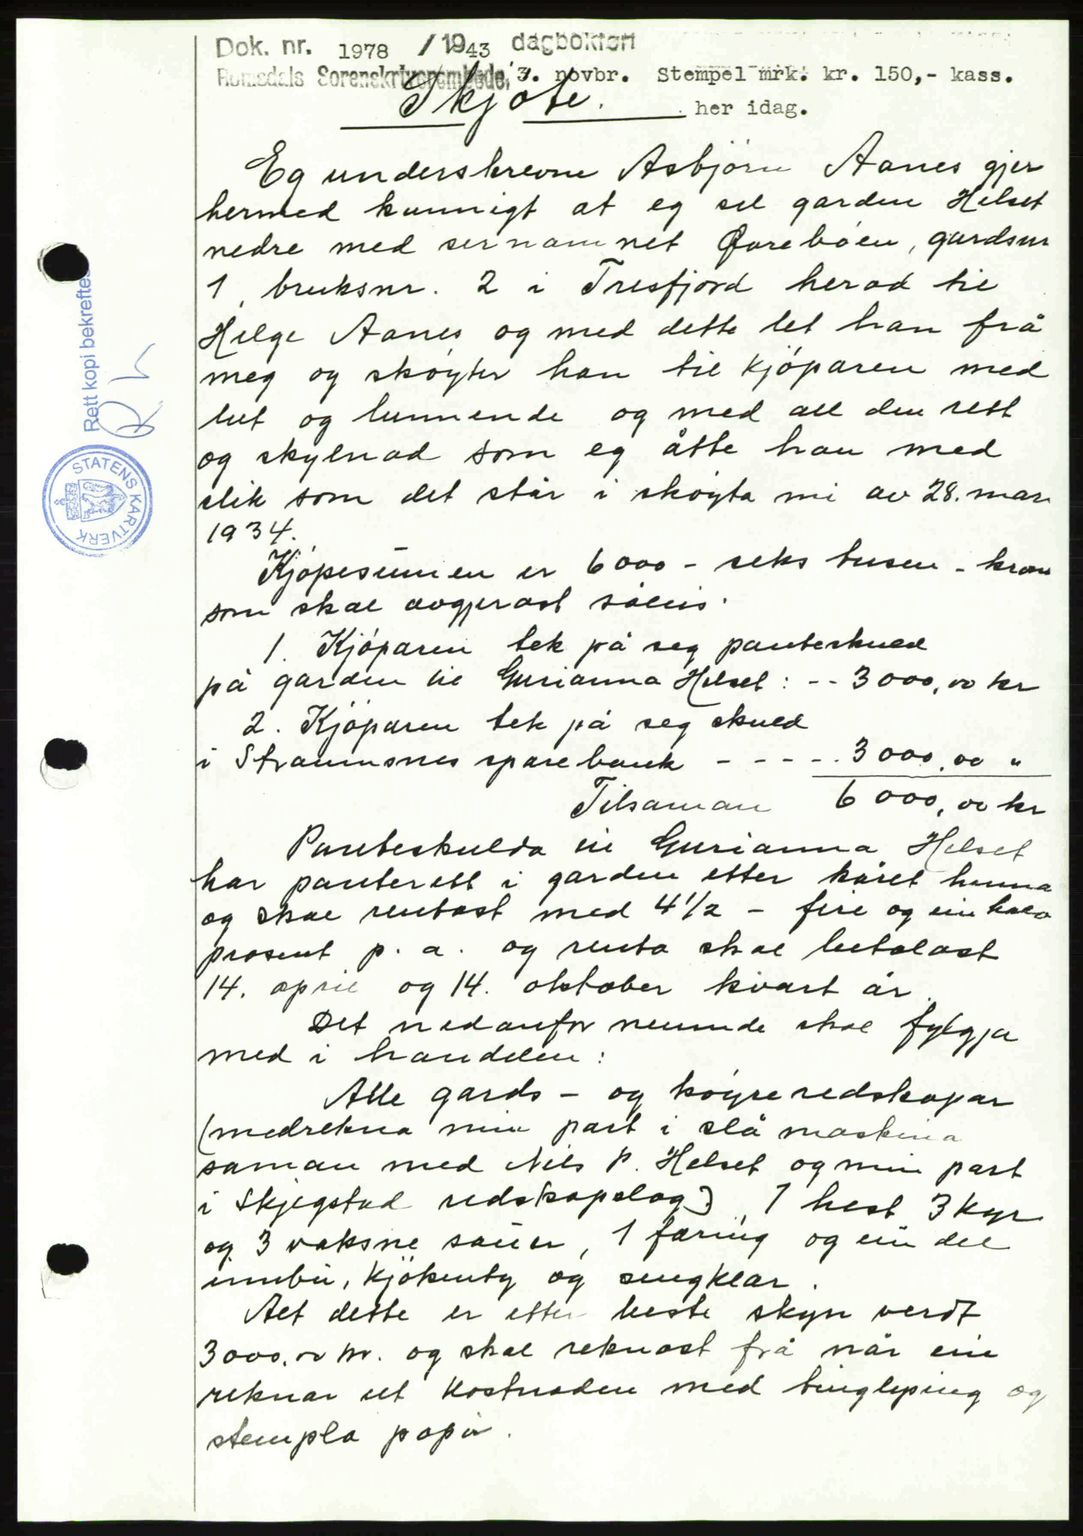 Dok. nr. 1978 / 1943 dagbokført
Romsdals Sorenskriverembede, 3. novbr. Stempel mrk. kr. 150,- kass.
Skjøte. her idag.
Eg underskrevne Asbjörn Aanes gjer
hermed kunnigt at eg sel garden Helset
nedre med sernamnet Øvreböen, gardsnr
1, bruksnr. 2 i Tresfjord herad til
Helge Aanes og med dette let han frå
meg og sköyter han til kjöparen med
lut og lunnende og med all den rett
og skylnad som eg åtte han med
slik som det står i sköyta mi av 28. mars
1934.
Kjöpesumen er 6000 - seks tusen - kroner
som skal avgjerast såleis:
1. Kjöparen tek på seg panteskuld
på garden til Gurianna Helset: -- 3000,00 kr
2. Kjöparen tek på seg skuld
i Straumsnes sparebank - - - - - 3000,00 "
Tilsaman 6000,00 kr
Panteskulda til Gurianna Helset
har panterett i garden etter kåret hennar
og skal rentast med 4 1/2 - fire og ein halv
prosent p. a. og renta skal betalast
14. april og 14. oktober kvart år.
Det nedanfor nemnde skal fylgja
med i handelen:
Alle gards - og köyreredskapar
(medrekna min part i slåmaskina
saman med Nils P. Helset og min part
i Skjegstad redskapslag) 1 hest 3 kyr
og 3 vaksne sauer, 1 færing og ein del
innbu, kjökenty og sengklær.
Alt dette er etter beste skyn verdt
3000.00 kr. og skal reknast frå når ein
reknar ut kostnaden med tinglysing og
stempla papir.
Rett kopi bekreftes
STATENS KARTVERK